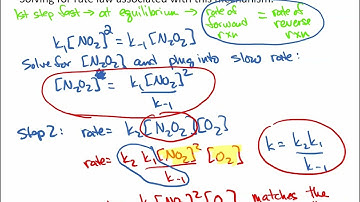 Solving for rate law associated with this mechanism:
1st step fast → at equilibrium → rate of forward rxn = rate of reverse rxn
k₁[NO₂]² = k₋₁[N₂O₂]
Solve for [N₂O₂] and plug into slow rate:
[N₂O₂] = k₁[NO₂]² / k₋₁
Step 2: rate = k₂[N₂O₂][O₂]
rate = k₂ k₁[NO₂]² [O₂] / k₋₁
k = k₂k₁ / k₋₁
[NO₂]² [O₂] matches the